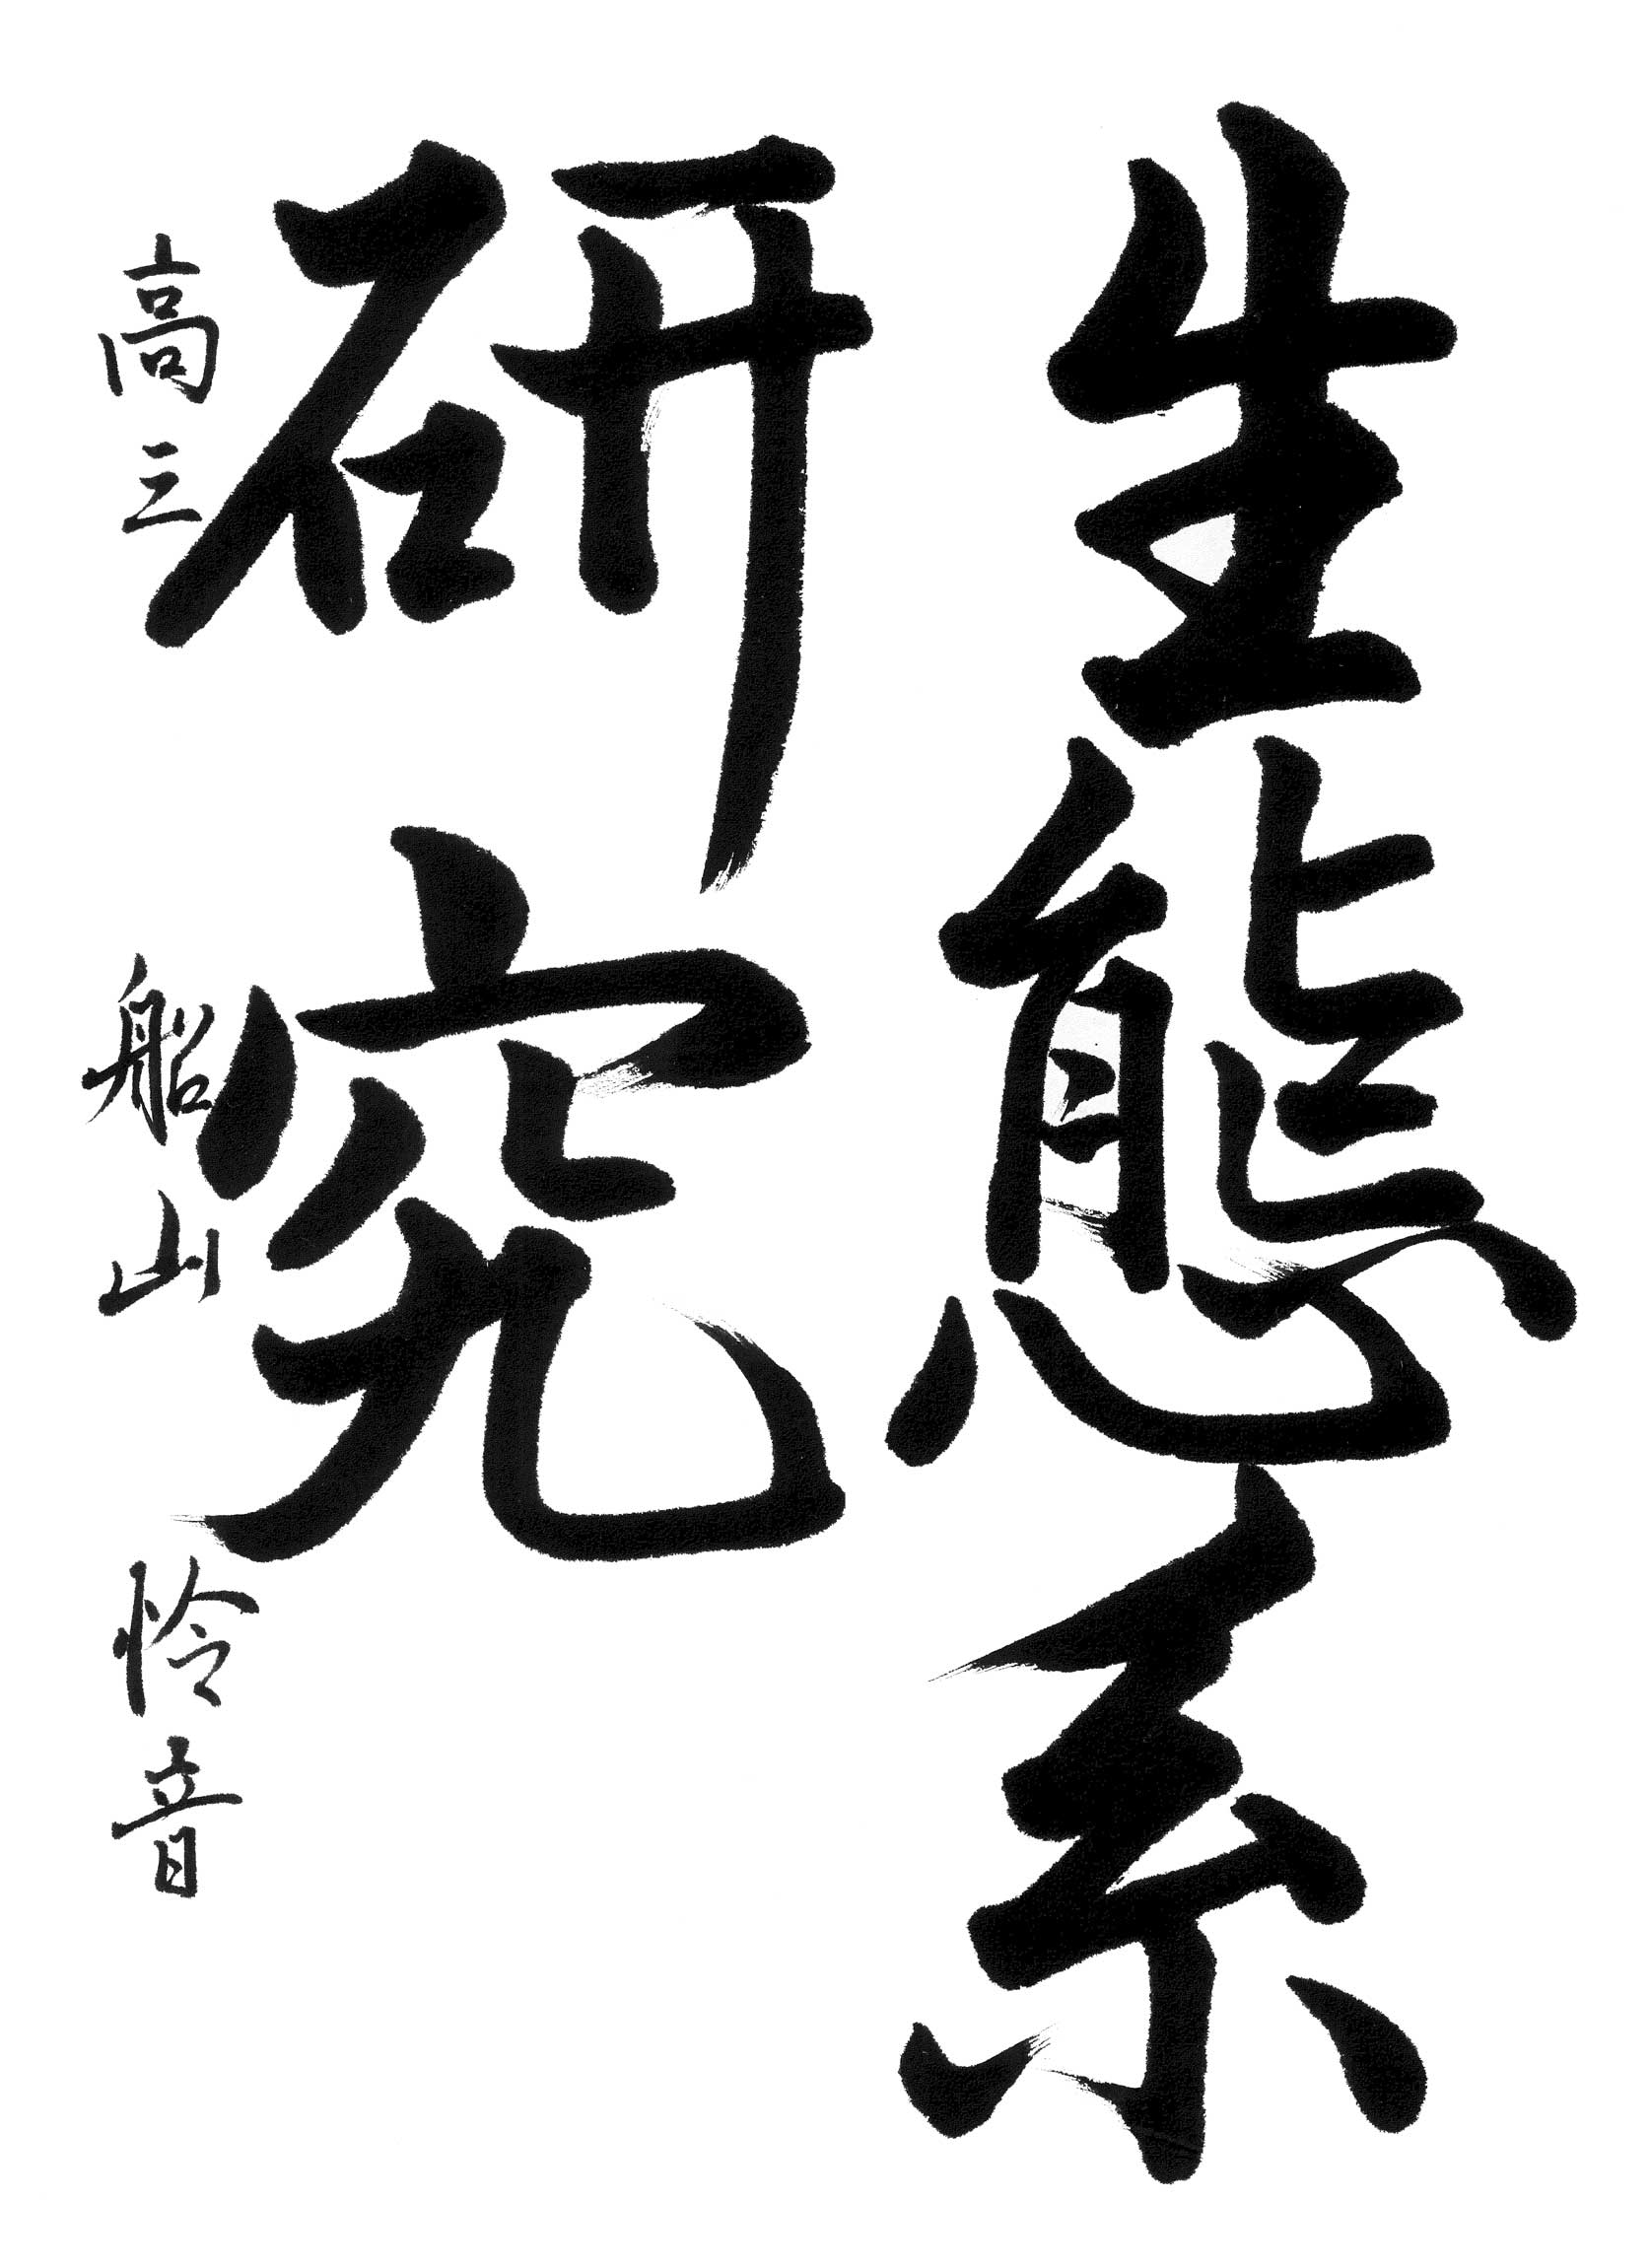 生態系
研究
高三 船山 怜音